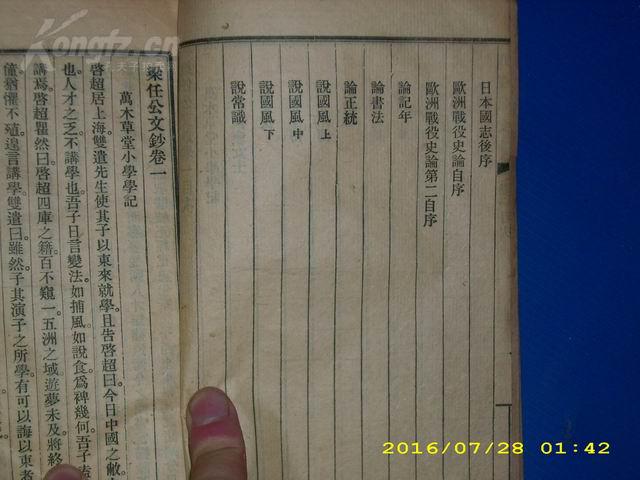 日本國志後序
歐洲戰役史論自序
歐洲戰役史論第二自序
論記年
論書法
論正統
說國風上
說國風中
說國風下
說常識
梁任公文鈔卷一
萬木草堂小學學記
啓超居上海雙遣先生使其子以東來就學且告啓超曰今日中國之敝。
也人才之乏不講學也吾子日言變法如捕風如說食爲裨幾何吾子盍
講焉。啓超瞿然曰啓超四庫之籍百不窺一五洲之域遊夢未及將終
僮猶懼不殖遑言講學雙遣曰雖然子其演子之所學有可以誨以東者
2016/07/28 01:42